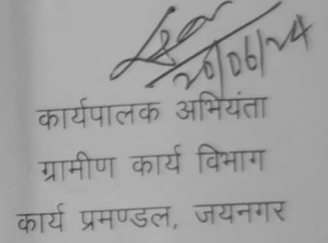 20/06/24
कार्यपालक अभियंता
ग्रामीण कार्य विभाग
कार्य प्रमण्डल, जयनगर